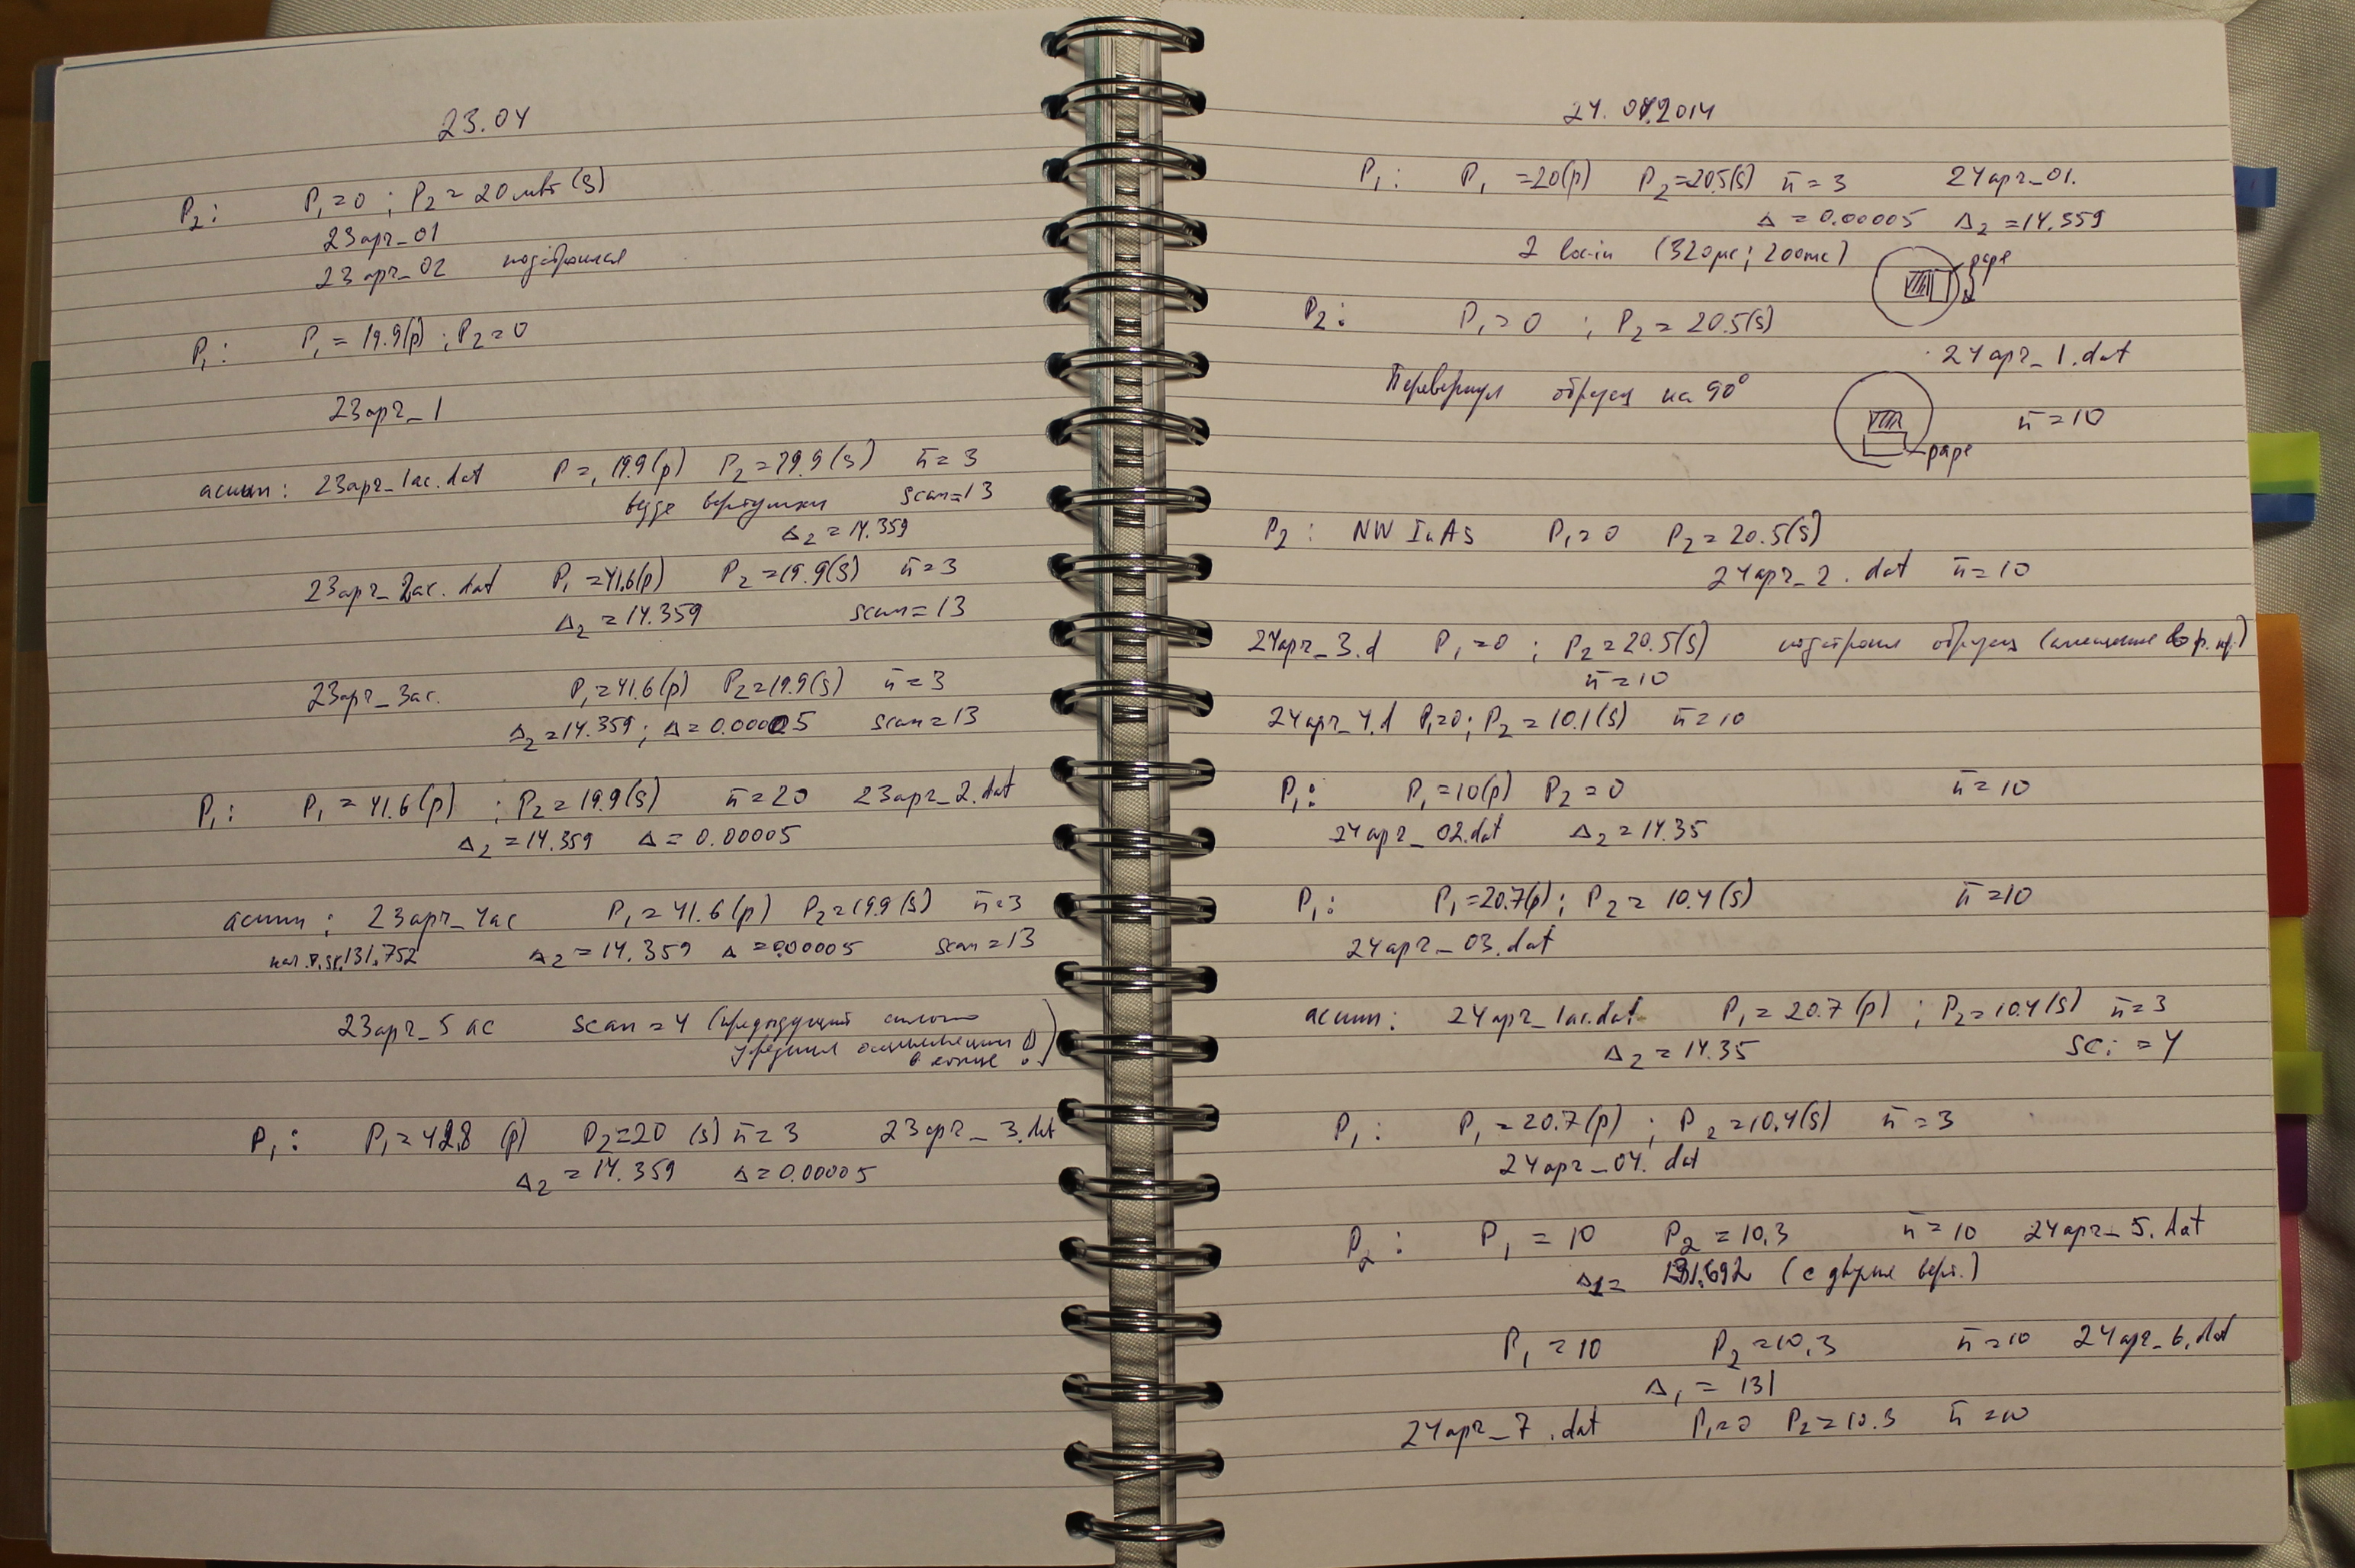 23.04
P₂: P₁=0 ; P₂=20мВт (s)
23apr_01
23apr_02 подстроился
P₁: P₁=19.9(p) ; P₂=0
23apr_1
асимм: 23apr_1ac.dat P=₁19.9(p) P₂=19.9(s) n̄=3
везде вертушки scan=13
Δ₂=14.359
23apr_2ac.dat P₁=41.6(p) P₂=19.9(s) n̄=3
Δ₂=14.359 scan=13
23apr_3ac. P₁=41.6(p) P₂=19.9(s) n̄=3
Δ₂=14.359; Δ=0.00005 scan=13
P₁: P₁=41.6(p) ; P₂=19.9(s) n̄=20 23apr_2.dat
Δ₂=14.359 Δ=0.00005
асимм: 23apr_4ac P₁=41.6(p) P₂=19.9(s) n̄=3
131.752 Δ₂=14.359 Δ=0.00005 scan=13
23apr_5ac scan=4 (предыдущий сильно
в конце!)
P₁: P₁=42.8 (p) P₂=20 (s) n̄=3 23apr_3.dat
Δ₂=14.359 Δ=0.00005
24.04.2014
P₁: P₁=20(p) P₂=20.5(s) n̄=3 24apr_01.
Δ=0.00005 Δ₂=14.359
2 loc-in (320мс; 200мс)
pape
P₂: P₁=0 ; P₂=20.5(s)
24apr_1.dat
Перевернул образец на 90°
n̄=10
pape
P₂: NW InAs P₁=0 P₂=20.5(s)
24apr_2.dat n̄=10
24apr_3.d P₁=0 ; P₂=20.5(s) подстроил образец (смещение
n̄=10
24apr_4.d P₁=0; P₂=10.1(s) n̄=10
P₁: P₁=10(p) P₂=0 n̄=10
24apr_02.dat Δ₂=14.35
P₁: P₁=20.7(p); P₂=10.4(s) n̄=10
24apr_03.dat
асимм: 24apr_1ac.dat P₁=20.7(p) ; P₂=10.4(s) n̄=3
Δ₂=14.35 sc: =4
P₁: P₁=20.7(p) ; P₂=10.4(s) n̄=3
24apr_04.dat
P₂: P₁=10 P₂=10.3 n̄=10 24apr_5.dat
Δ₁= 131.692 (с двумя верт.)
P₁=10 P₂=10.3 n̄=10 24apr_6.dat
Δ₁=131
24apr_7.dat P₁=0 P₂=10.3 n̄=10